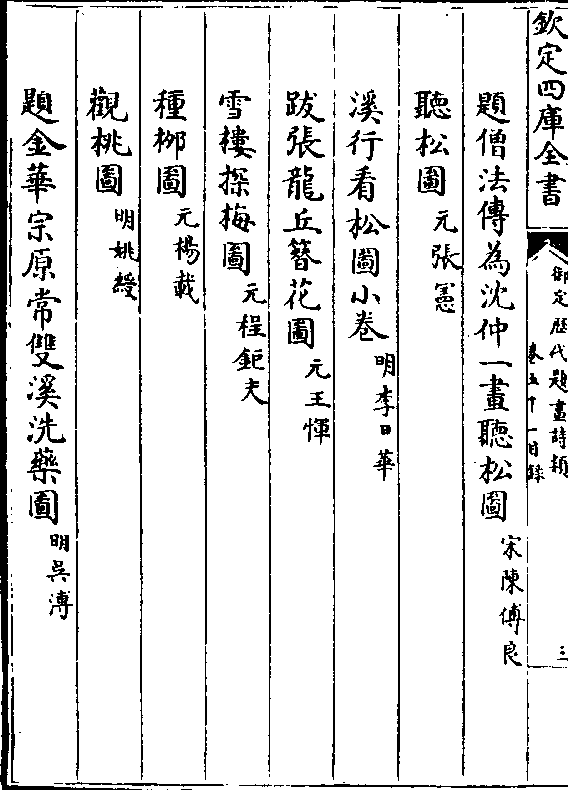 欽定四庫全書
御定歷代題畫詩類
卷五十一目錄
三
題僧法傳為沈仲一畫聽松圖 宋陳傅良
聽松圖 元張憲
溪行看松圖小卷 明李日華
跋張龍丘簪花圖 元王惲
雪樓探梅圖 元程鉅夫
種桞圖 元楊載
觀桃圖 明姚綬
題金華宗原常雙溪洗藥圖 明吳溥